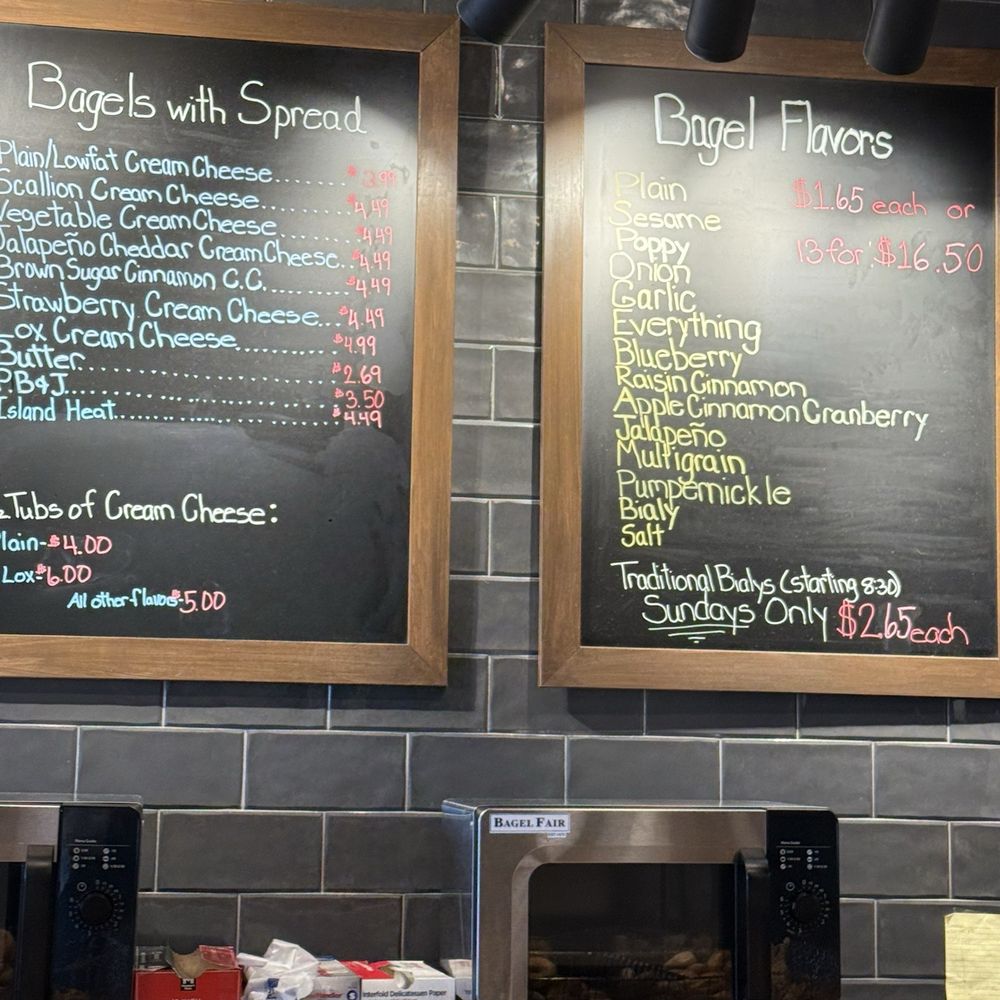 Bagels with Spread
Plain/Lowfat Cream Cheese....... $3.99
Scallion Cream Cheese........... $4.49
Vegetable Cream Cheese.......... $4.49
Jalapeño Cheddar Cream Cheese... $4.49
Brown Sugar Cinnamon C.C. ....... $4.49
Strawberry Cream Cheese... $4.49
Lox Cream Cheese........... $4.99
Butter................ $2.69
P.B&J................ $3.50
Island Heat................ $4.49
Tubs of Cream Cheese:
Plain-$4.00
Lox-$6.00
All other flavors-$5.00
Bagel Flavors
Plain $1.65 each or
Sesame
Poppy 13 for: $16.50
Onion
Garlic
Everything
Blueberry
Raisin Cinnamon
Apple Cinnamon Cranberry
Jalapeño
Multigrain
Pumpernickle
Bialy
Salt
Traditional Bialys (starting 8:30)
Sundays Only $2.65 each
BAGEL FAIR
Interfold Delicatessen Paper